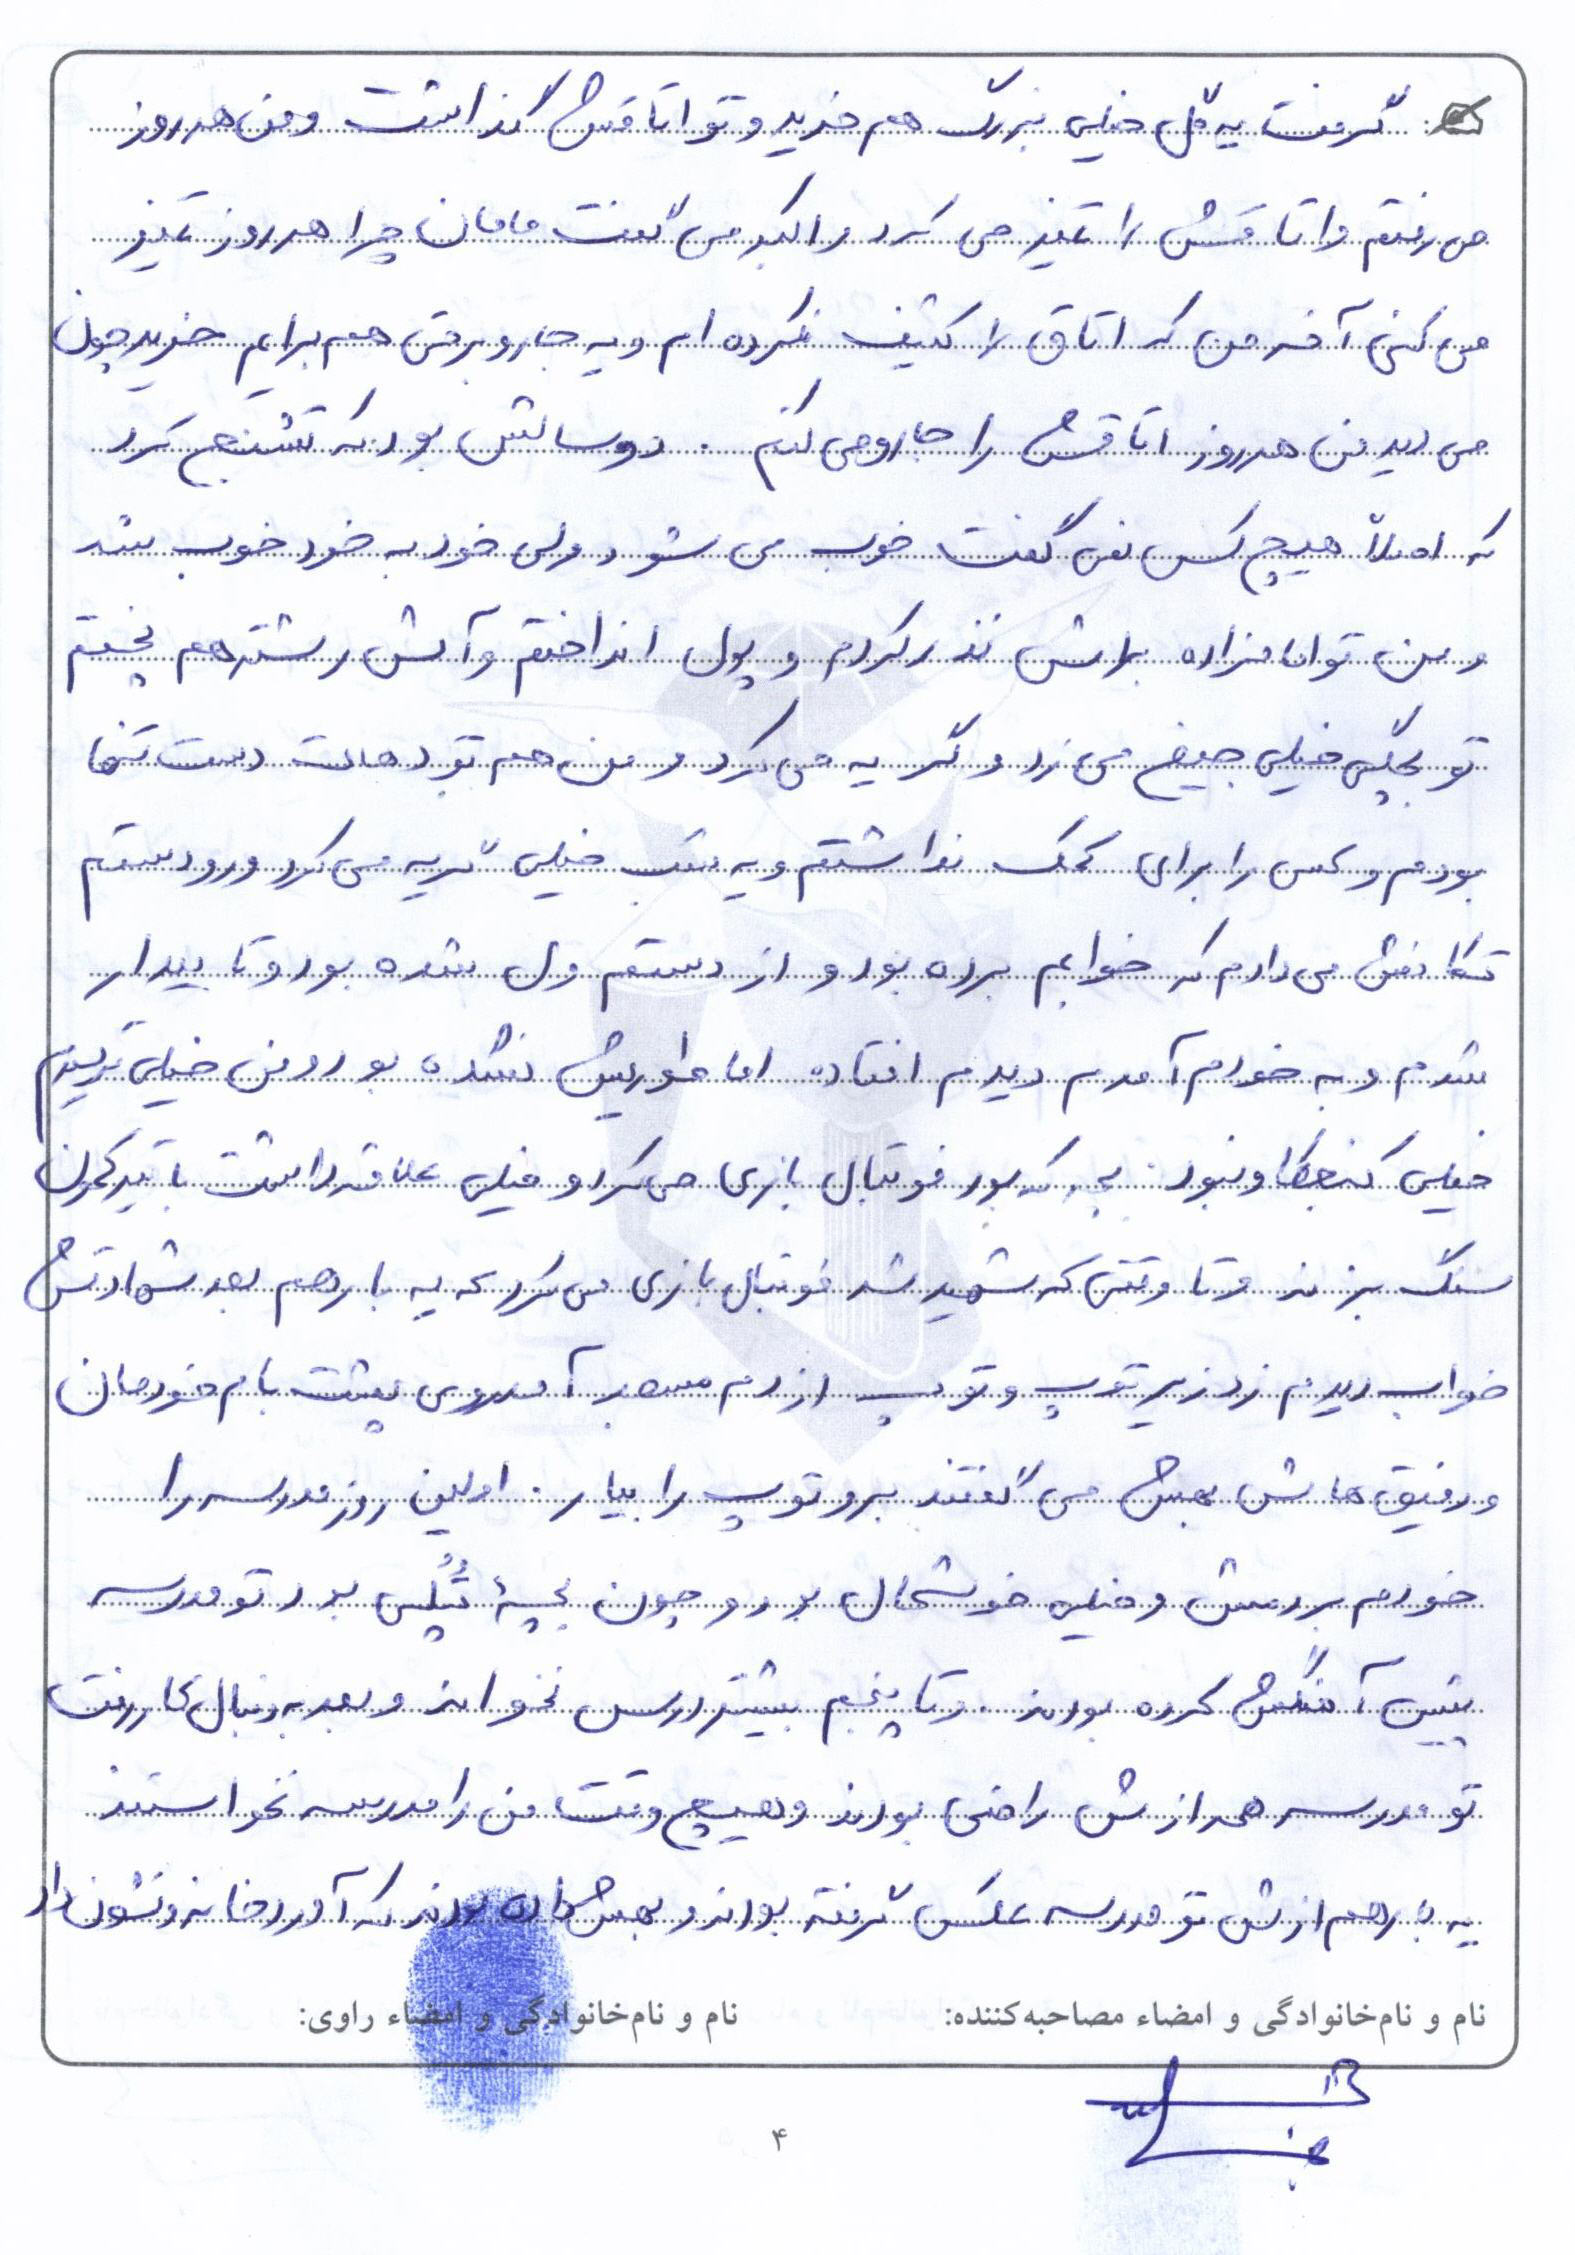 گرفت یه گل خیلی بزرگ هم خرید و تو اتاقش گذاشت و من هر روز
می رفتم و اتاقش را تمیز می کرد و اکبر می گفت مامان چرا هر روز تمیز
می کنی آخه من که اتاق را کثیف نکرده ام و یه جارو برقی هم برایم خرید چون
می دید من هر روز اتاقش را جارو می کنم . دو سالش بود که تشنج کرد
که اصلاً هیچ کس نمی گفت خوب می شود ولی خود به خود خوب شد
و من تو امامزاده برایش نذر کردم و پول انداختم و آش رشته هم پختم
تو بچگی خیلی جیغ می زد و گریه می کرد و من هم تو دهات دست تنها
بودم و کسی را برای کمک نداشتم و یه شب خیلی گریه می کرد و رو دستم
تکانش می دادم که خوابم برده بود و از دستم ول شده بود و تا بیدار
شدم و به خودم آمدم دیدم افتاده اما طوریش نشده بود و من خیلی ترسیدم
خیلی کنجکاو نبود . بچه که بود فوتبال بازی می کرد و خیلی علاقه داشت با تیرکمون
سنگ بزند و تا وقتی که شهید شد فوتبال بازی می کرد که یه بار هم بعد شهادتش
خواب دیدم زد زیر توپ و توپ از دم مسجد آمد روی پشت بام خودمان
و رفیق هایش بهش می گفتند برو توپ را بیار . اولین روز مدرسه را
خودم بردمش و خیلی خوشحال بود و چون بچۀ تُپُلی بود تو مدرسه
بنیش آهنگش کرده بودند . و تا پنجم بیشتر درس نخواند و بعد به دنبال کار رفت
تو مدرسه همه ازش راضی بودند و هیچ وقت من را مدرسه نخواستند
یه بار هم ازش تو مدرسه عکس گرفته بودند و بهش داده بودند که آورد خانه و نشون داد
نام و نام‌خانوادگی و امضاء مصاحبه‌کننده: نام و نام‌خانوادگی و امضاء راوی:
۴